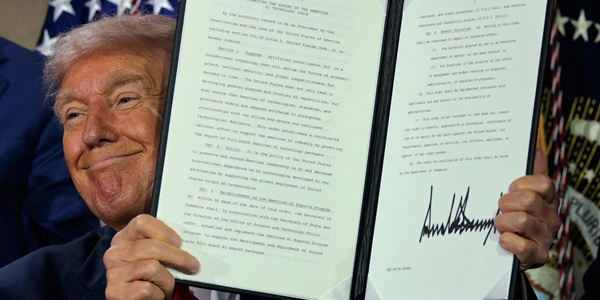 PROMOTING THE EXPORT OF THE AMERICAN
AI TECHNOLOGY STACK
By the authority vested in me as President by the
Constitution and the laws of the United States of America,
including section 301 of title 3, United States Code, it is
hereby ordered:
Section 1. Purpose. Artificial intelligence (AI) is a
foundational technology that will define the future of economic
growth, national security, and global competitiveness for
decades to come. The United States must not only lead in
developing general-purpose and frontier AI capabilities, but
also ensure that American AI technologies, standards, and
governance models are adopted worldwide to strengthen
relationships with our allies and secure our continued
technological dominance. This order establishes a coordinated
national effort to support the American AI industry by promoting
the export of full-stack American AI technology packages.
Sec. 2. Policy. It is the policy of the United States
to preserve and extend American leadership in AI and decrease
international dependence on AI technologies developed by our
adversaries by supporting the global deployment of United
States-origin AI technologies.
Sec. 3. Establishment of the American AI Exports Program.
(a) Within 90 days of the date of this order, the Secretary of
Commerce shall, in consultation with the Secretary of State and
the Director of the Office of Science and Technology Policy
(OSTP), establish and implement the American AI Exports Program
(Program) to support the development and deployment of United
States full-stack AI export packages.
Sec. General Provisions. (a) Nothing in this order
shall be construed to impair or otherwise affect:
(i) the authority granted by law to an executive
department or agency, or the head thereof; or
(ii) the functions of the Director of the Office
of Management and Budget relating to budgetary,
administrative, or legislative proposals.
(b) This order shall be implemented consistent with
applicable law and subject to the availability of
appropriations.
(c) This order is not intended to, and does not, create
any right or benefit, substantive or procedural, enforceable at
law or in equity by any party against the United States, its
departments, agencies, or entities, its officers, employees, or
agents, or any other person.
(d) The costs for publication of this order shall be borne
by the Department of Commerce.
THE WHITE HOUSE,
PLURIB